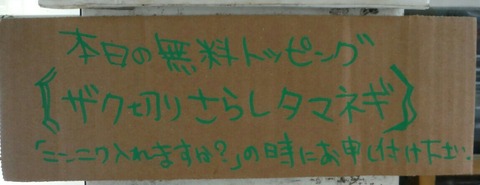 本日の無料トッピング
{ザク切りさらしタマネギ}
「ニンニク入れますか?」の時にお申し付け下さい。